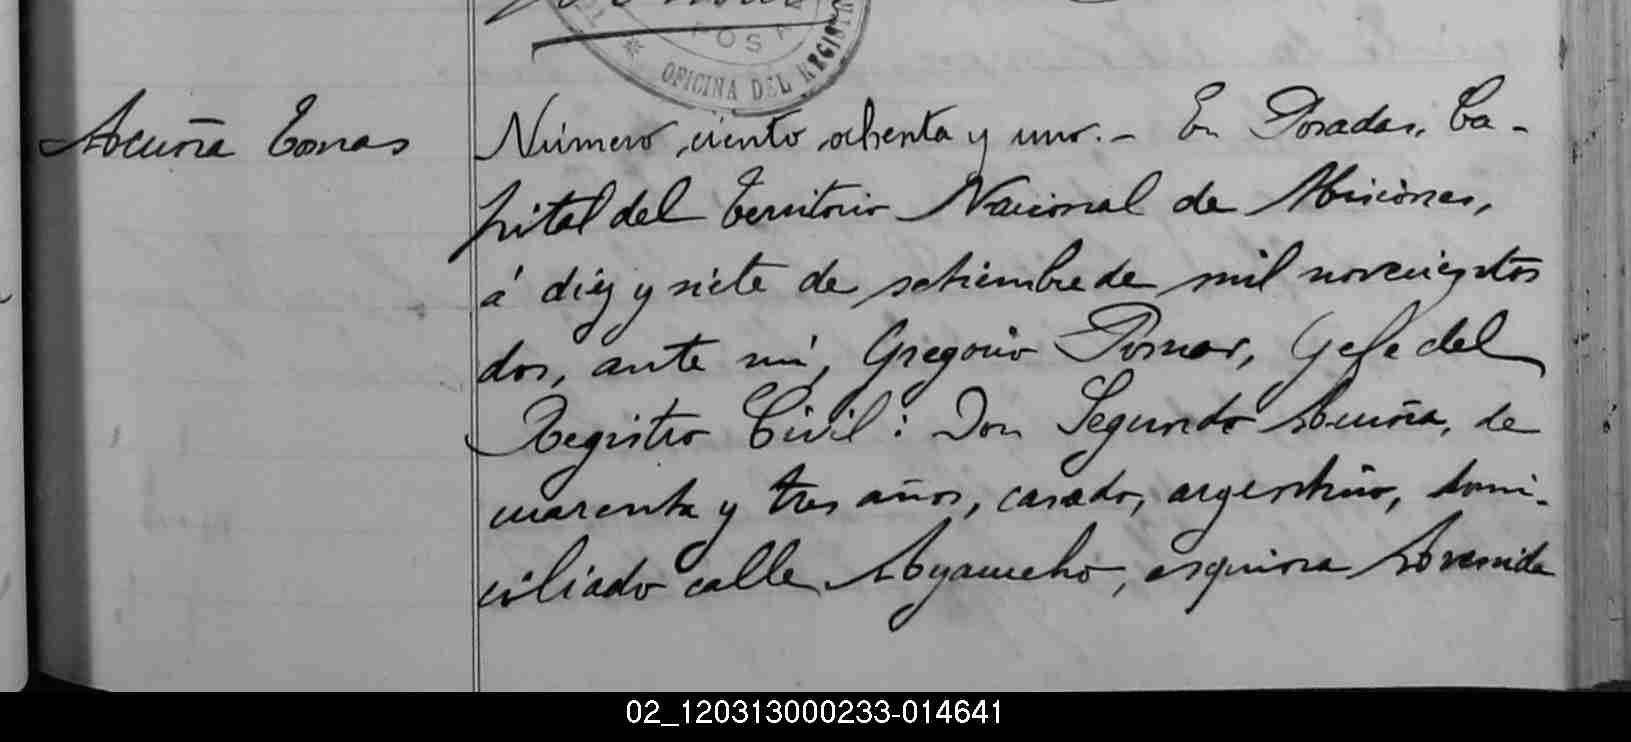 OFICINA DEL REGISTR
Acuña Tomas
Número ciento ochenta y uno.- En Posadas, Ca-
pital del Territorio Nacional de Misiones,
á diéz y siete de setiembre de mil novecientos
dos, ante mí, Gregorio Pomar, Gefe del
Registro Civil: Don Segundo Acuña, de
cuarenta y tres años, casado, argentino, domi-
ciliado calle Ayacucho, esquina Avenida
02_120313000233-014641